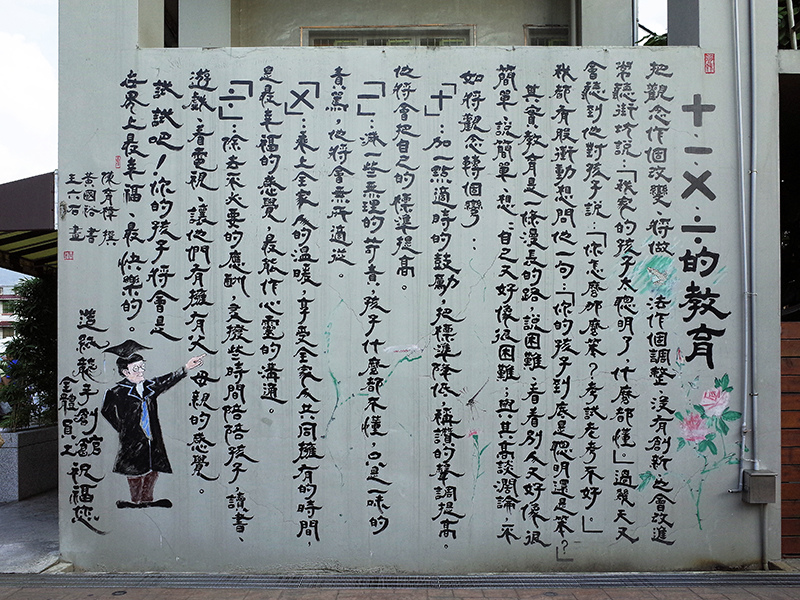 十－×÷的教育
把觀念作個改變，將做法作個調整，沒有創新，怎會改進
常聽街坊說：「我家的孩子太聰明了，什麼都懂。」過幾天又
會聽到他對孩子說：「你怎麼那麼笨？考試老考不好。」
我都有股衝動想問他一句：「你的孩子到底是聰明還是笨？」
其實教育是一條漫長的路，說困難，看看別人又好像很
簡單，說簡單，想想自己又好像很困難，與其高談濶論，不
如將觀念轉個彎：
「十」：加一點適時的鼓勵，把標準降低，稱讚的聲調提高。
他將會把自己的標準提高。
「－」：減一些無理的苛責，孩子什麼都不懂，只是一味的
責罵，他將會無所適從。
「×」：乘上全家人的溫暖，享受全家人共同擁有的時間，
是最幸福的感覺，最能作心靈的溝通。
「÷」：除去不必要的應酬，多撥些時間陪陪孩子，讀書、
遊戲、看電視，讓他們有擁有父母親的感覺。
試試吧！你的孩子將會是
在世界上最幸福、最快樂的。
黃國裕 書
王六石 畫
造紙龍子創意館
全體員工
祝福您